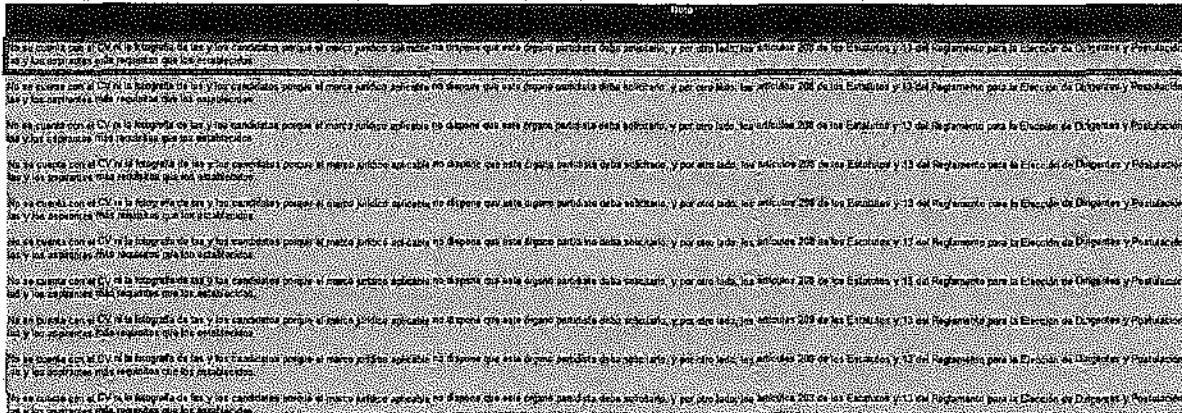 Nota
No se cuenta con el CV ni la fotografía de las y los candidatos porque el marco jurídico aplicable no dispone que este órgano partidista deba solicitarlo, y por otro lado, los artículos 208 de los Estatutos y 13 del Reglamento para la Elección de Dirigentes y Postulación
las y los aspirantes más requisitos que los establecidos.
No se cuenta con el CV ni la fotografía de las y los candidatos porque el marco jurídico aplicable no dispone que este órgano partidista deba solicitarlo, y por otro lado, los artículos 208 de los Estatutos y 13 del Reglamento para la Elección de Dirigentes y Postulación
las y los aspirantes más requisitos que los establecidos.
No se cuenta con el CV ni la fotografía de las y los candidatos porque el marco jurídico aplicable no dispone que este órgano partidista deba solicitarlo, y por otro lado, los artículos 208 de los Estatutos y 13 del Reglamento para la Elección de Dirigentes y Postulación
las y los aspirantes más requisitos que los establecidos.
No se cuenta con el CV ni la fotografía de las y los candidatos porque el marco jurídico aplicable no dispone que este órgano partidista deba solicitarlo, y por otro lado, los artículos 208 de los Estatutos y 13 del Reglamento para la Elección de Dirigentes y Postulación
las y los aspirantes más requisitos que los establecidos.
No se cuenta con el CV ni la fotografía de las y los candidatos porque el marco jurídico aplicable no dispone que este órgano partidista deba solicitarlo, y por otro lado, los artículos 208 de los Estatutos y 13 del Reglamento para la Elección de Dirigentes y Postulación
las y los aspirantes más requisitos que los establecidos.
No se cuenta con el CV ni la fotografía de las y los candidatos porque el marco jurídico aplicable no dispone que este órgano partidista deba solicitarlo, y por otro lado, los artículos 208 de los Estatutos y 13 del Reglamento para la Elección de Dirigentes y Postulación
las y los aspirantes más requisitos que los establecidos.
No se cuenta con el CV ni la fotografía de las y los candidatos porque el marco jurídico aplicable no dispone que este órgano partidista deba solicitarlo, y por otro lado, los artículos 208 de los Estatutos y 13 del Reglamento para la Elección de Dirigentes y Postulación
las y los aspirantes más requisitos que los establecidos.
No se cuenta con el CV ni la fotografía de las y los candidatos porque el marco jurídico aplicable no dispone que este órgano partidista deba solicitarlo, y por otro lado, los artículos 208 de los Estatutos y 13 del Reglamento para la Elección de Dirigentes y Postulación
las y los aspirantes más requisitos que los establecidos.
No se cuenta con el CV ni la fotografía de las y los candidatos porque el marco jurídico aplicable no dispone que este órgano partidista deba solicitarlo, y por otro lado, los artículos 208 de los Estatutos y 13 del Reglamento para la Elección de Dirigentes y Postulación
las y los aspirantes más requisitos que los establecidos.
No se cuenta con el CV ni la fotografía de las y los candidatos porque el marco jurídico aplicable no dispone que este órgano partidista deba solicitarlo, y por otro lado, los artículos 208 de los Estatutos y 13 del Reglamento para la Elección de Dirigentes y Postulación